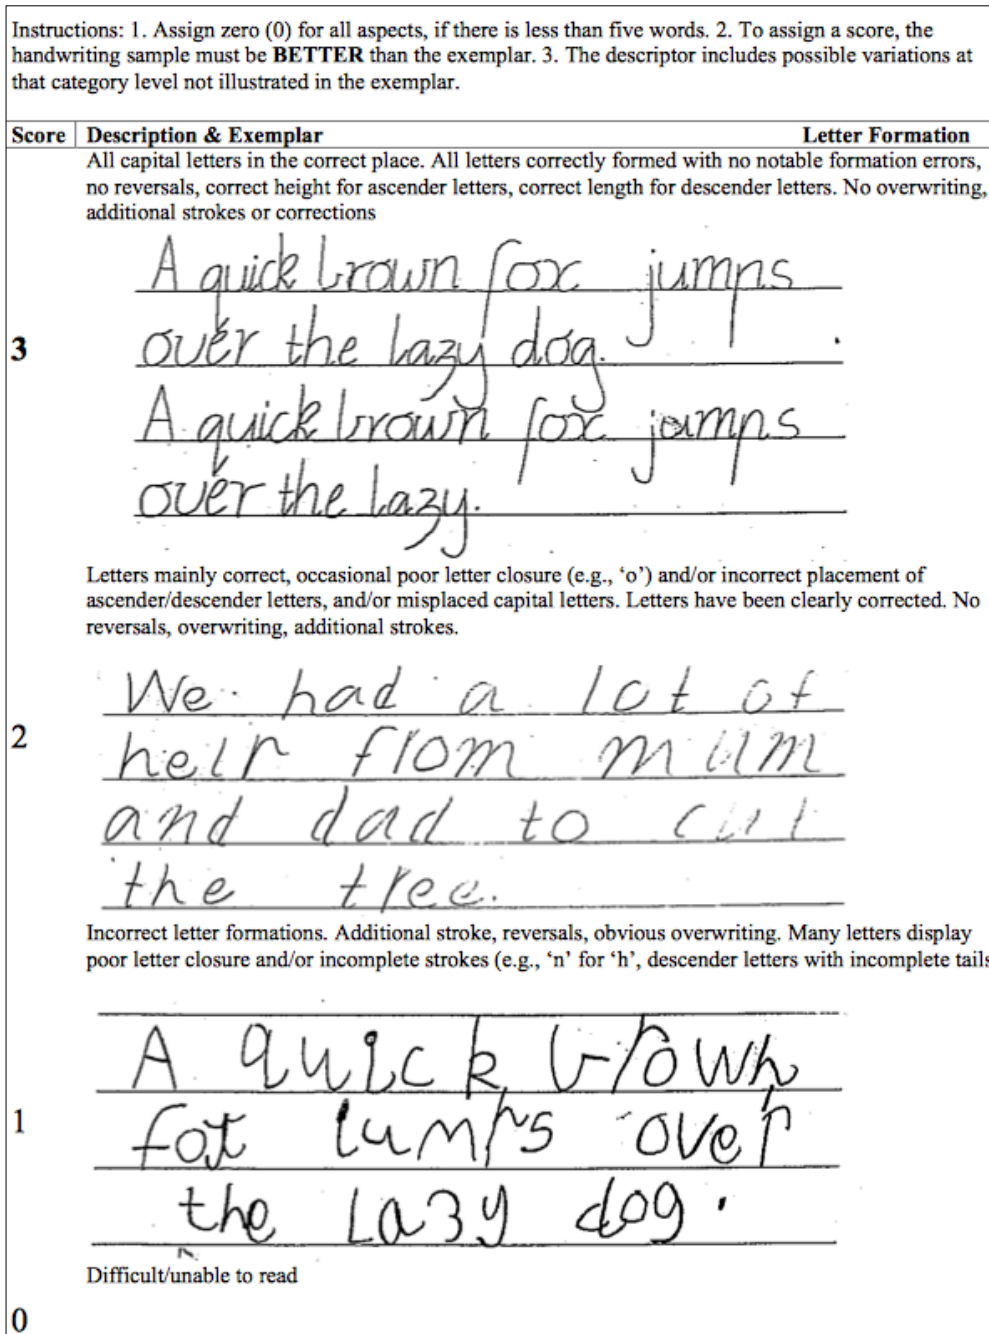 Instructions: 1. Assign zero (0) for all aspects, if there is less than five words. 2. To assign a score, the
handwriting sample must be BETTER than the exemplar. 3. The descriptor includes possible variations at
that category level not illustrated in the exemplar.
Score Description & Exemplar Letter Formation
All capital letters in the correct place. All letters correctly formed with no notable formation errors,
no reversals, correct height for ascender letters, correct length for descender letters. No overwriting,
additional strokes or corrections
A quick brown fox jumps
3
over the lazy dog.
A quick brown fox jamps
over the lazy.
Letters mainly correct, occasional poor letter closure (e.g., ‘o’) and/or incorrect placement of
ascender/descender letters, and/or misplaced capital letters. Letters have been clearly corrected. No
reversals, overwriting, additional strokes.
We had a lot of
2
help from mum
and dad to cut
the tree.
Incorrect letter formations. Additional stroke, reversals, obvious overwriting. Many letters display
poor letter closure and/or incomplete strokes (e.g., ‘n’ for ‘h’, descender letters with incomplete tails
A quick brown
1
fox lumps over
the Lazy dog.
Difficult/unable to read
0